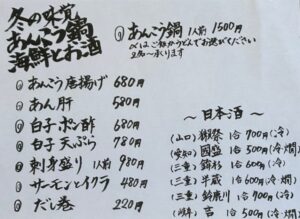 冬の味覚
あんこう鍋
海鮮とお酒
① あんこう鍋 1人前 1500円
2名〜承ります
② あんこう唐揚げ 680円
③ あん肝 580円
白子ポン酢 680円
白子天ぷら 780円
刺身盛り 1人前 980円
サーモンとイクラ 480円
だし巻 220円
〜日本酒〜
(山口) 獺祭 1合 700円(冷)
(愛知) 國盛 1合 500円(冷・燗)
(三重) 鉾杉 1合 600円(冷)
(三重) 半蔵 1合 600円(冷・燗)
(三重) 鈴鹿川 1合 700円(冷)
1合 500円(冷・燗)